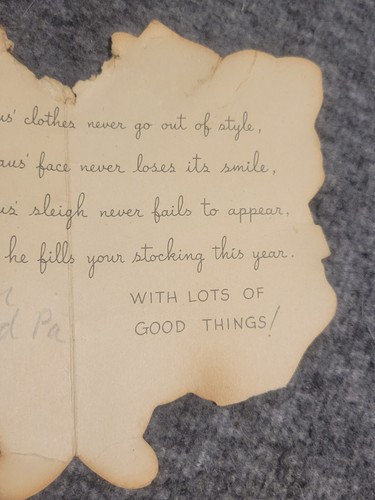 us' clothes never go out of style,
aus' face never loses its smile,
us' sleigh never fails to appear,
he fills your stocking this year.
WITH LOTS OF
GOOD THINGS!
d Pa